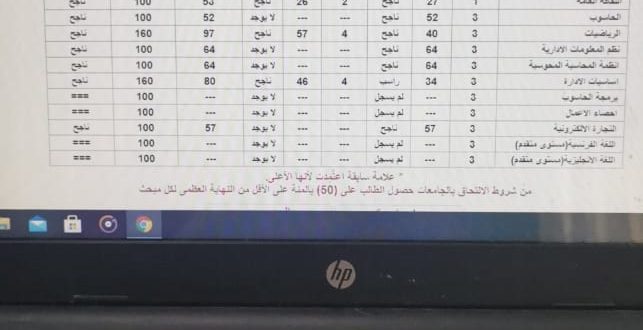 الثقافة العامة 1 27 ناجح 2 26 ناجح 53 100 ناجح
الحاسوب 3 52 ناجح --- --- لا يوجد 52 100 ناجح
الرياضيات 3 40 ناجح 4 57 ناجح 97 160 ناجح
نظم المعلومات الادارية 3 64 ناجح --- --- لا يوجد 64 100 ناجح
انظمة المحاسبية المحوسبة 3 64 ناجح --- --- لا يوجد 64 100 ناجح
اساسيات الادارة 3 34 راسب 4 46 ناجح 80 160 ناجح
برمجة الحاسوب 3 --- لم يسجل --- --- لا يوجد --- 100 ===
احصاء الاعمال 3 --- لم يسجل --- --- لا يوجد --- 100 ===
التجارة الالكترونية 3 57 ناجح --- --- لا يوجد 57 100 ناجح
اللغة الفرنسية(مستوى متقدم) 3 --- لم يسجل --- --- لا يوجد --- 100 ===
اللغة الانجليزية(مستوى متقدم) 3 --- لم يسجل --- --- لا يوجد --- 100 ===
* علامة سابقة اعتمدت لأنها الأعلى.
من شروط الالتحاق بالجامعات حصول الطالب على (50) بالمئة على الأقل من النهاية العظمى لكل مبحث
hp